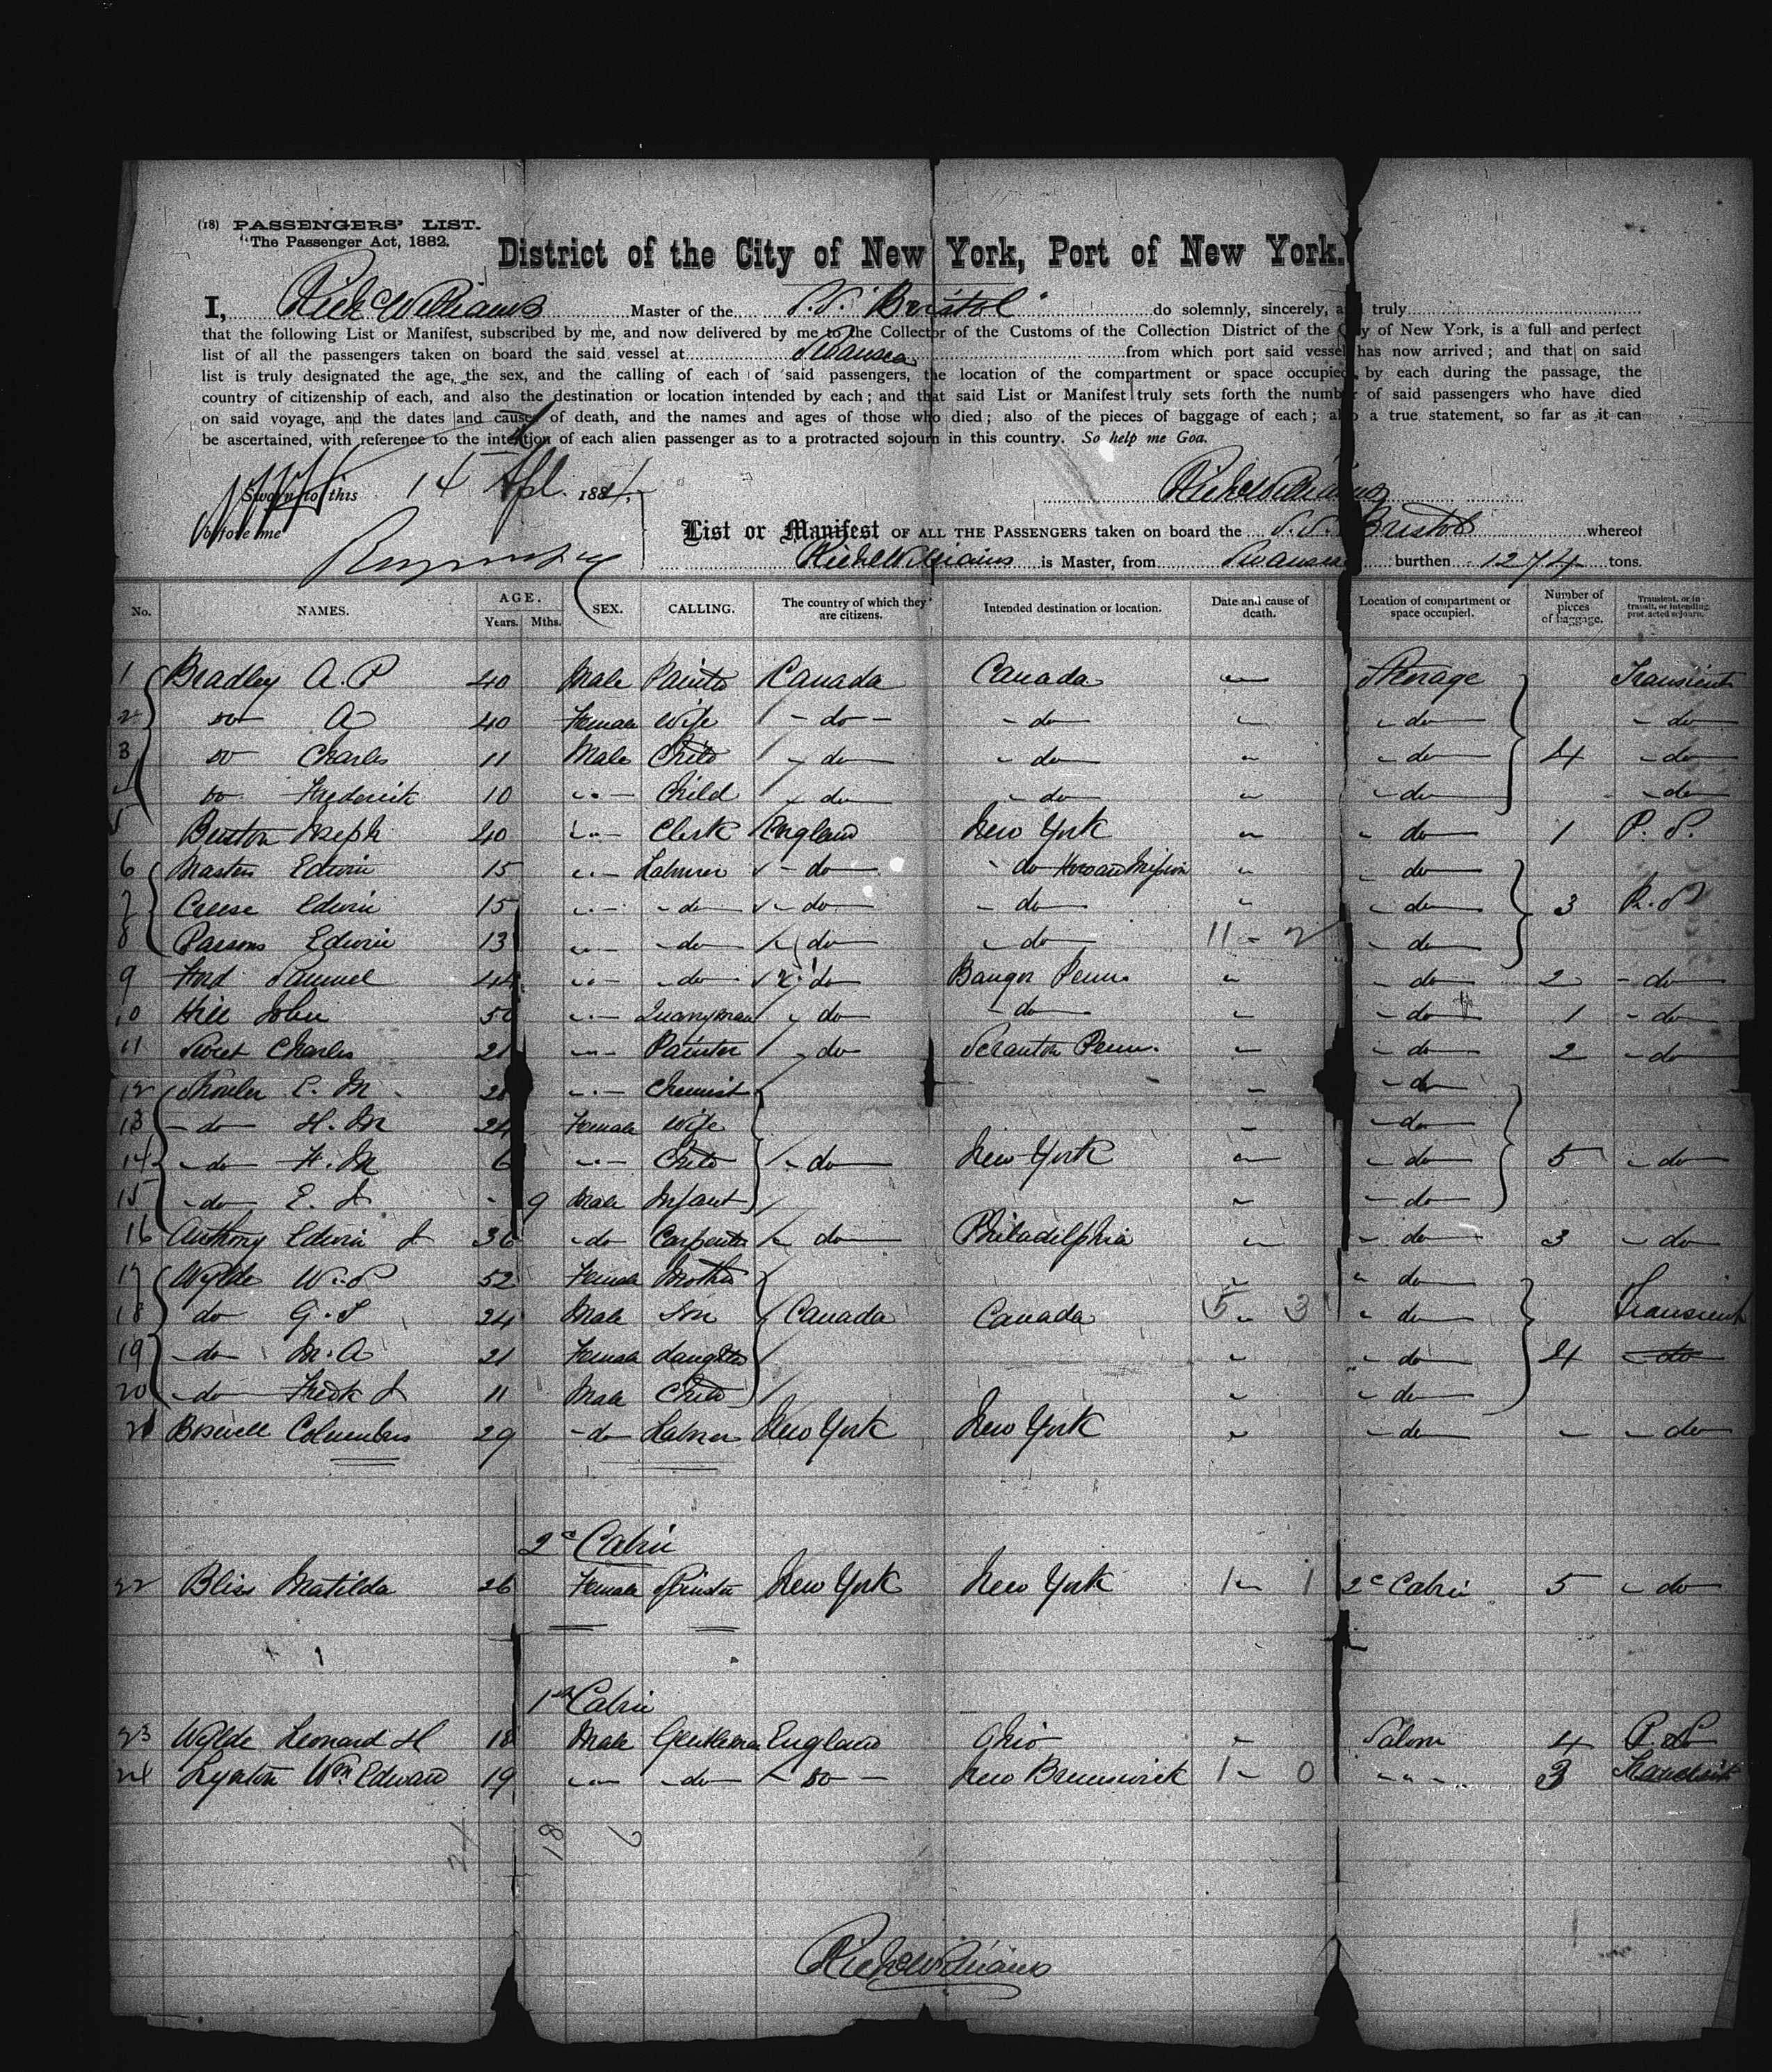 (18) PASSENGERS' LIST.
"The Passenger Act, 1882.
District of the City of New York, Port of New York.
I, Rich Williams Master of the S.S. "Bristol" do solemnly, sincerely, and truly
that the following List or Manifest, subscribed by me, and now delivered by me to the Collector of the Customs of the Collection District of the City of New York, is a full and perfect
list of all the passengers taken on board the said vessel at Swansea from which port said vessel has now arrived; and that on said
list is truly designated the age, the sex, and the calling of each of said passengers, the location of the compartment or space occupied by each during the passage, the
country of citizenship of each, and also the destination or location intended by each; and that said List or Manifest truly sets forth the number of said passengers who have died
on said voyage, and the dates and causes of death, and the names and ages of those who died; also of the pieces of baggage of each; also a true statement, so far as it can
be ascertained, with reference to the intention of each alien passenger as to a protracted sojourn in this country. So help me God.
Sworn to this 15 Apl. 1884, Rich Williams
before me
List or Manifest OF ALL THE PASSENGERS taken on board the S.S. Bristol whereof
Rich Williams is Master, from Swansea burthen 1274 tons.
No. NAMES. AGE. Years. Mths. SEX. CALLING. The country of which they are citizens. Intended destination or location. Date and cause of death. Location of compartment or space occupied. Number of pieces of baggage. Transient, or in transit, or intending protracted sojourn.
1 Bradley A. P 40 Male Painter Canada Canada Steerage Transient
2 do A 40 Female Wife do do do do
3 do Charles 11 Male Child do do do 4 do
4 do Frederick 10 Child do do do do
5 Benton Joseph 40 Clerk England New York do 1 P. S.
6 Masters Edwin 15 Labourer do do Mission do
7 Creese Edwin 15 do do do do 3 P. S
8 Parsons Edwin 13 do do do 11 - 2 do
9 Ford Samuel 44 do do Bangor Penn. do 2 do
10 Hill John 50 Quarryman do do do 1 do
11 Sweet Charles 21 Painter do Scranton Penn. do 2 do
12 E. M. Chemist do
13 do H. M 24 Female Wife do
14 do F. M 6 Child do New York do 5 do
15 do E. J 9 Male Infant do
16 Anthony Edwin J 36 do Carpenter do Philadelphia do 3 do
17 Wylde W. P 52 Female Mother do
18 do G. S 24 Male Son Canada Canada 5 3 do Transient
19 do M. A 21 Female daughter do 4 do
20 do Fredk J 11 Male Child do
21 Boswell Columbus 29 do Labourer New York New York do do
2c Cabin
22 Bliss Matilda 26 Female Spinster New York New York 1 1 2c Cabin 5 do
1st Cabin
23 Wylde Leonard H 18 Male Gentleman England Ohio Saloon 4 P. S
24 Lynton Wm Edward 19 do do New Brunswick 1 0 3 Transient
24 18 6
Rich Williams